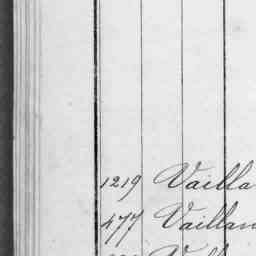 1219 Vailla
477 Vaillan